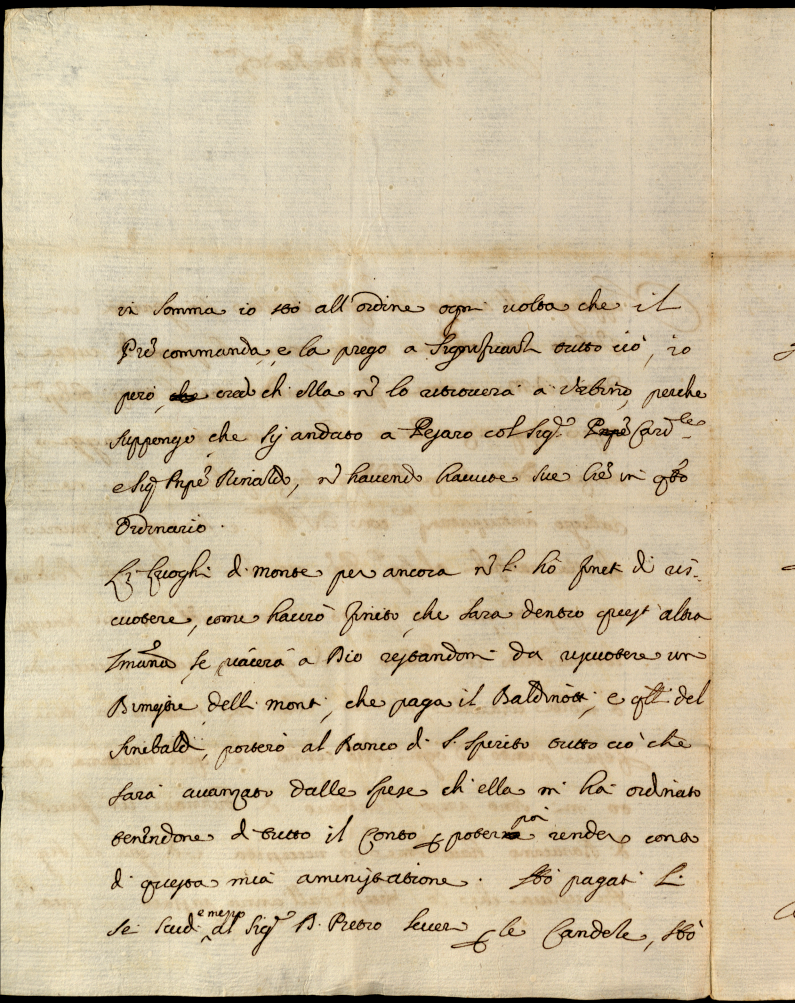 in somma io stò all'ordine ogni volta che il
Prẽ commanda, e la prego a significarli tutto ciò, io
però, che credo ch'ella nõ lo ritroverà a Urbino, perche
suppongo che sij andato a Pesaro col Sigr. Prñpe Card.le
e Sig.r Prñpe Rinaldo, nõ havendo havute sue lrẽ in qsto
Ordinario.
Li Luoghi di monte per ancora nõ li hò finiti di ris=
cuotere, come haverò finito, che sarà dentro quest'altra
Smana se piacerà a Dio restandomi da riscuotere un
Bimestre delli monti, che paga il Baldinotti, e qlli del
Sinibaldi, porterò al Banco di S. Spirito tutto ciò che
sarà avanzato dalle spese ch'ella mi hà ordinato
tenendone di tutto il Conto p poter poi render conto
di questa mia aministratione. Hò pagati li
sei scudi e mezzo al Sigr. D. Pietro p le Candele, hò